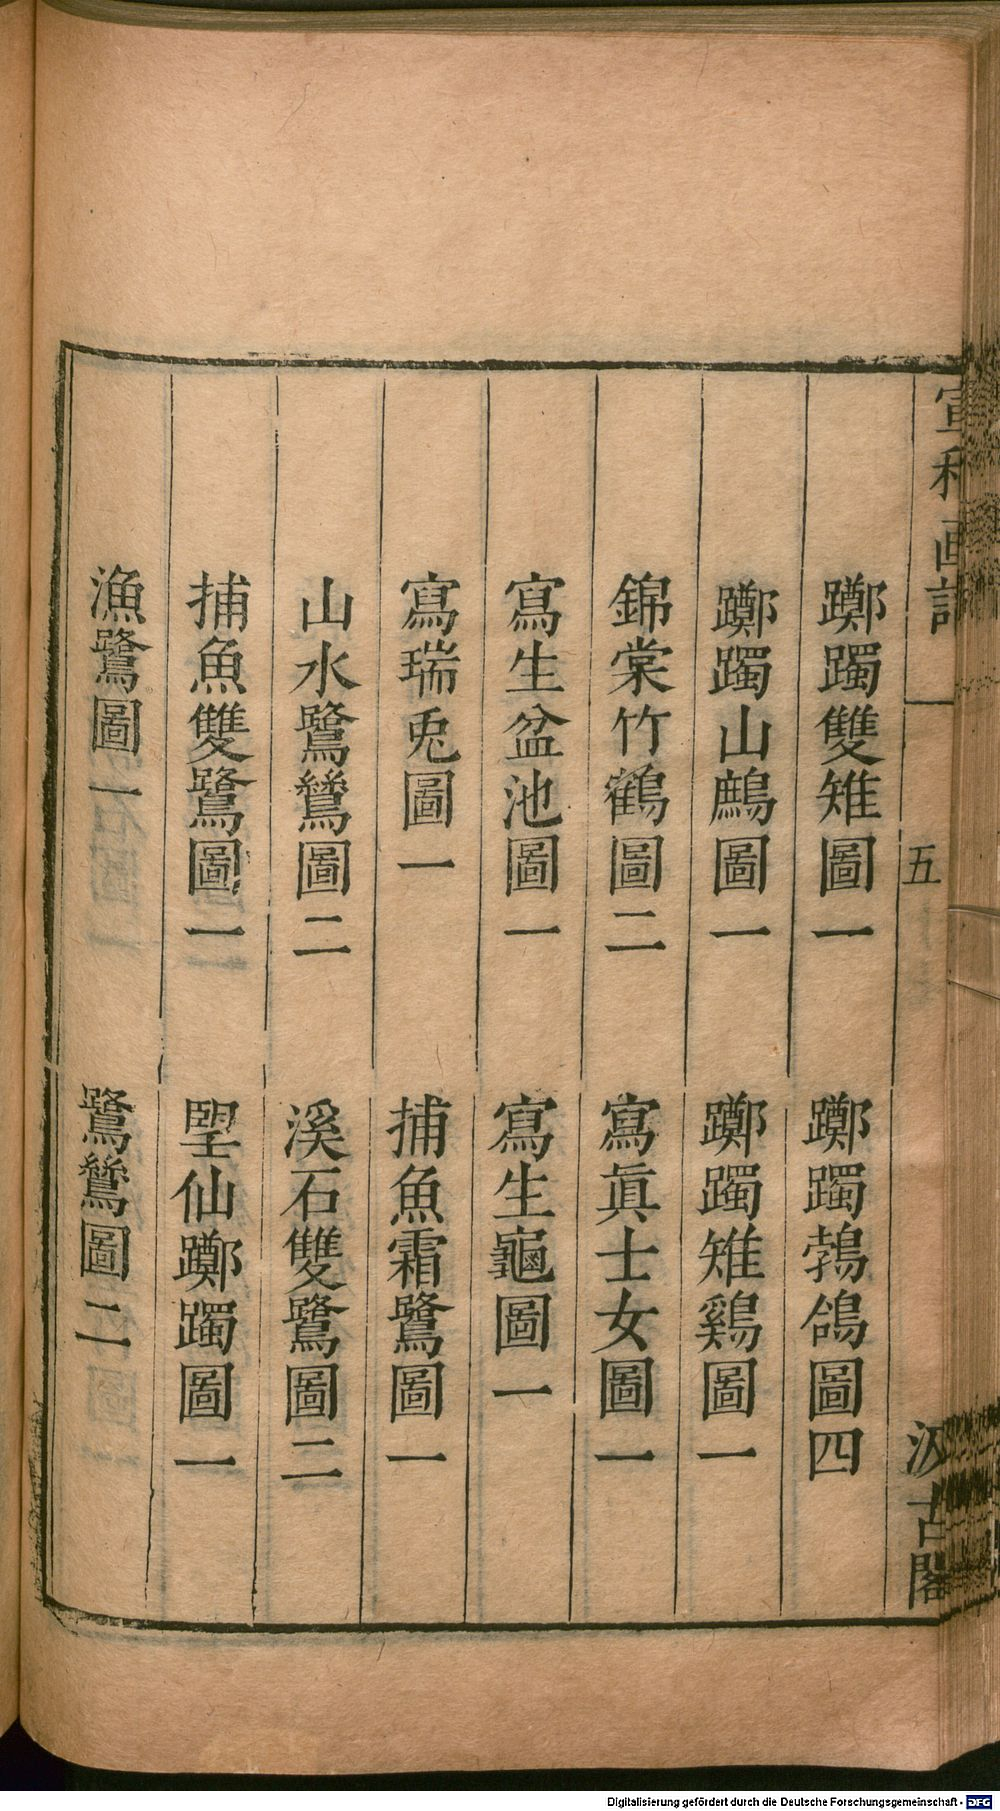 宣和画譜 五 汲古閣
躑躅雙雉圖一 躑躅鵓鴿圖四
躑躅山鷓圖一 躑躅雉鷄圖一
錦棠竹鶴圖二 寫真士女圖一
寫生盆池圖一 寫生龜圖一
寫瑞兎圖一 捕魚霜鷺圖一
山水鷺鷥圖二 溪石雙鷺圖二
捕魚雙鷺圖一 朢仙躑躅圖一
漁鷺圖一 鷺鷥圖二
Digitalisierung gefördert durch die Deutsche Forschungsgemeinschaft - DFG